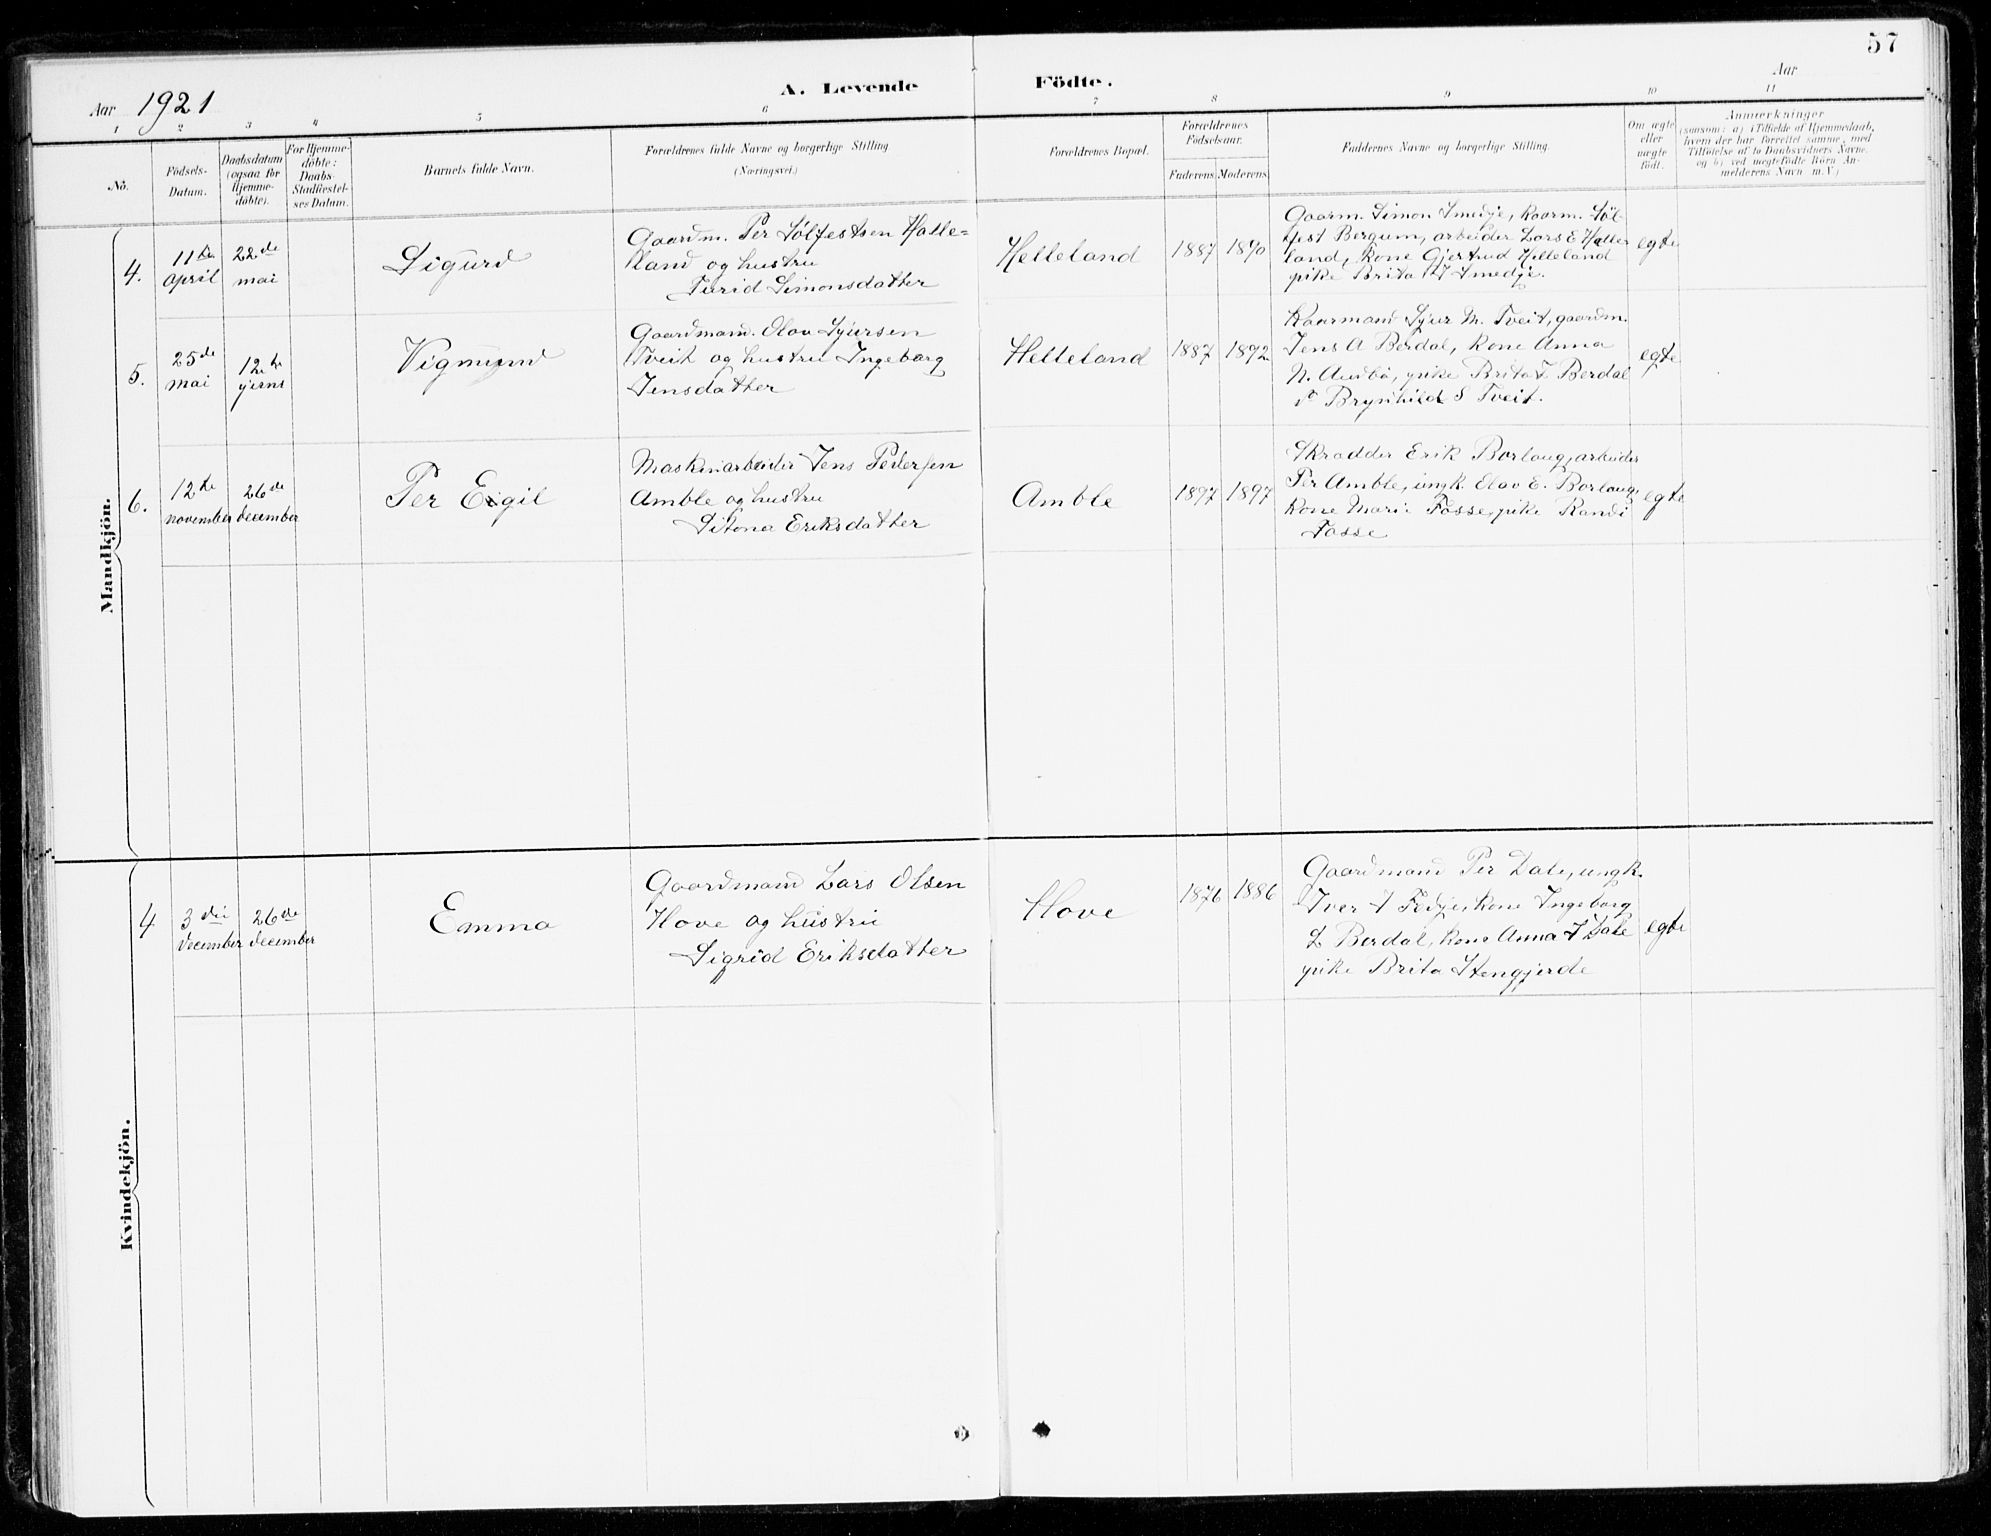 57
Aar 1921
A. Levende Födte.
Aar
1 2 3 4 5 6 7 8 9 10 11
No.
Födsels-
Datum.
Daabsdatum
(ogsaa for
Hjemme-
döbte).
For Hjemme-
döbte:
Daabs-
Stadfæstel-
ses Datum.
Barnets fulde Navn.
Forældrenes fulde Navne og borgerlige Stilling
(Næringsvei.)
Forældrenes Bopæl.
Forældrenes
Födselsaar.
Faderens
Moderens
Faddernes Navne og borgerlige Stilling.
Om ægte
eller
uægte
födt.
Anmærkninger
(saasom: a) i Tilfælde af Hjemmedaab,
hvem der har forrettet samme, med
Tilföielse af to Daabsvidners Navne.
og b) ved uægtefödte Börn An-
melderens Navn m.V.)
Mandkjön.
4.
11te
april
22de
mai
Sigurd
Gaardm. Per Sølfestsen Helle-
land og hustru
Turid Simonsdatter
Helleland
1887
1890
Gaarm. Simon Smedje, kaarm. Søl-
fest Bergum, arbeider Lars E Helle
land, kone Gjertrud Helleland
pike Brita Smedje.
egte
5.
25de
mai
12te
juni
Vigmund
Gaardmand. Olav Sjursen
Tveit og hustru Ingeborg
Jensdatter
Helleland
1887
1892
Kaarmand Sjur M. Tveit, gaardm.
Jens A Berdal, kone Anna
N. pike Brita J Berdal
Brynhild S Tveit.
egte
6.
12te
november
26de
december
Per Eigil
Maskinarbeider Jens Pedersen
Amble og hustru
Eriksdatter
Amble
1897
1897
Skradder Erik Borlaug, arbeider
Per Amble, ungk. Olav E. Borlaug,
kone Mari Fosse, pike Randi
Fosse
egte
Kvindekjön.
4
3die
december
26de
december
Emma
Gaardmand Lars Olsen
Hove og hustru
Sigrid Eriksdatter
Hove
1876
1886
Gaardmand Per Dale, ungk.
Iver Fedje, kone Ingeborg
L Berdal, kone Anna J Dale
pike Brita Stengjerde
egte